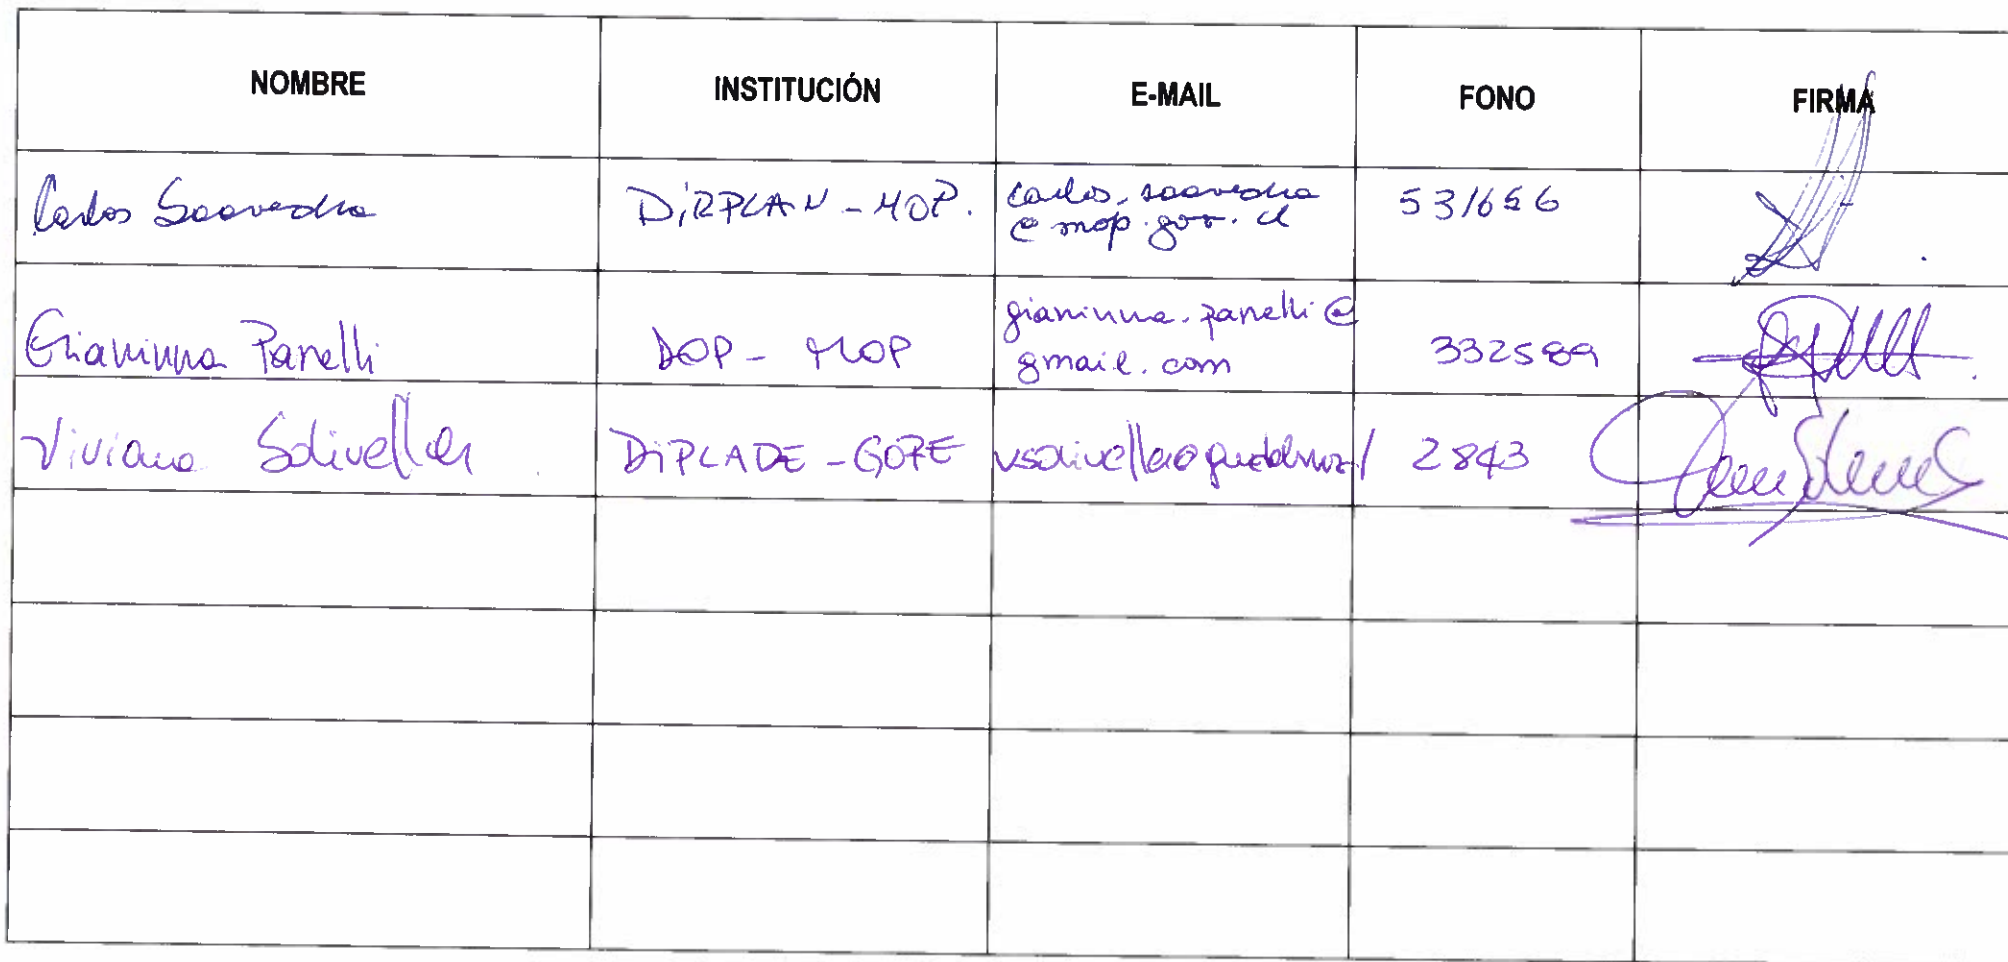 NOMBRE INSTITUCIÓN E-MAIL FONO FIRMA
Carlos Saavedra DIRPLAN - MOP. carlos.saavedra
@mop.gov.cl 531656
Gianinna Panelli DOP - MOP gianinna.panelli@
gmail.com 332589
Viviana Solivelles DIPLADE - GORE 2843